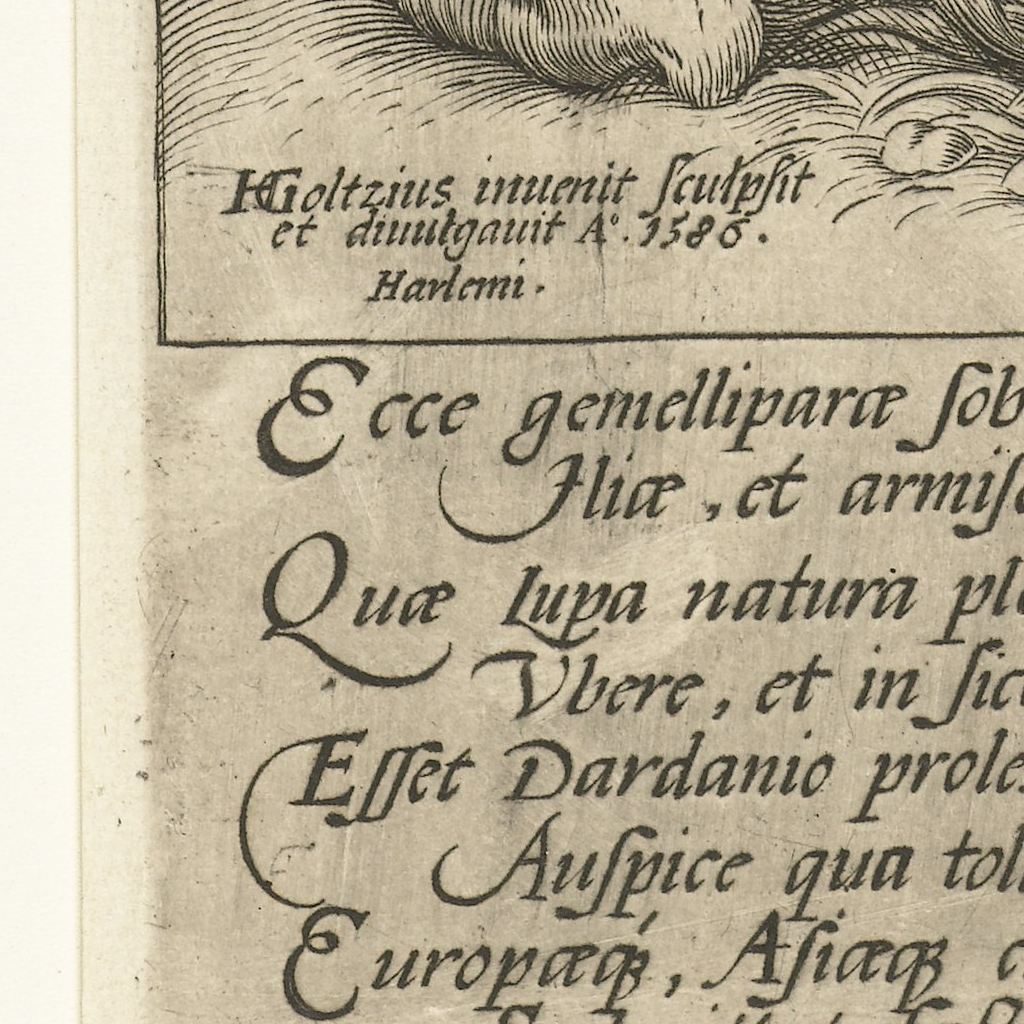 HGoltzius inuenit ſculpſit
et diuulgauit A°. 1586.
Harlemi.
Ecce gemelliparæ ſob
Iliæ, et armiſ
Quæ Lupa natura pl
Vbere, et in ſic
Eſſet Dardanio prole
Auſpice qua toll
Europæq́, Aſiæq